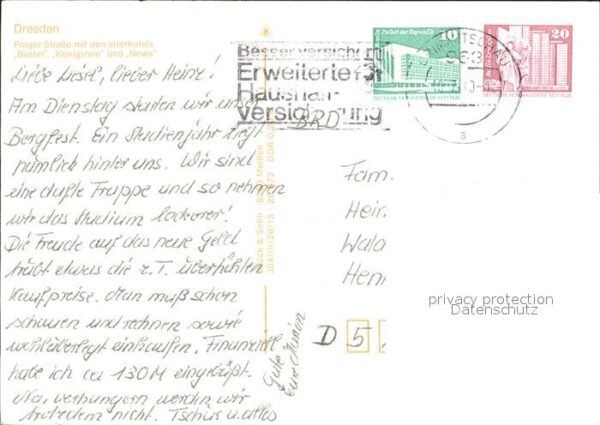 Dresden
Prager Straße mit den Interhotels
"Bastei", "Königstein" und "Newa"
Liebe Liesel, lieber Heinz!
Am Dienstag starten wir unser
Bergfest. Ein Studienjahr liegt
nämlich hinter uns. Wir sind
eine dufte Truppe und so nehmen
wir das Studium lockerer!
Die Freude auf das neue Geld
trübt etwas die z.T. überhöhten
Kaufpreise. Man muß schon
schauen und rechnen sowie
wohlüberlegt einkaufen. Finanziell
habe ich ca 130 M eingebüßt.
Na, verhungern werden wir
trotzdem nicht. Tschüs u. alles
Gute
Eure
Besser versichert
Erweiterte
Haushalt-
versicherung
Palast der Republik
10
20
BRD
Fam.
Hein
Wala
Henn
D 5
privacy protection
Datenschutz